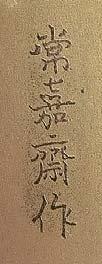 常嘉齋作